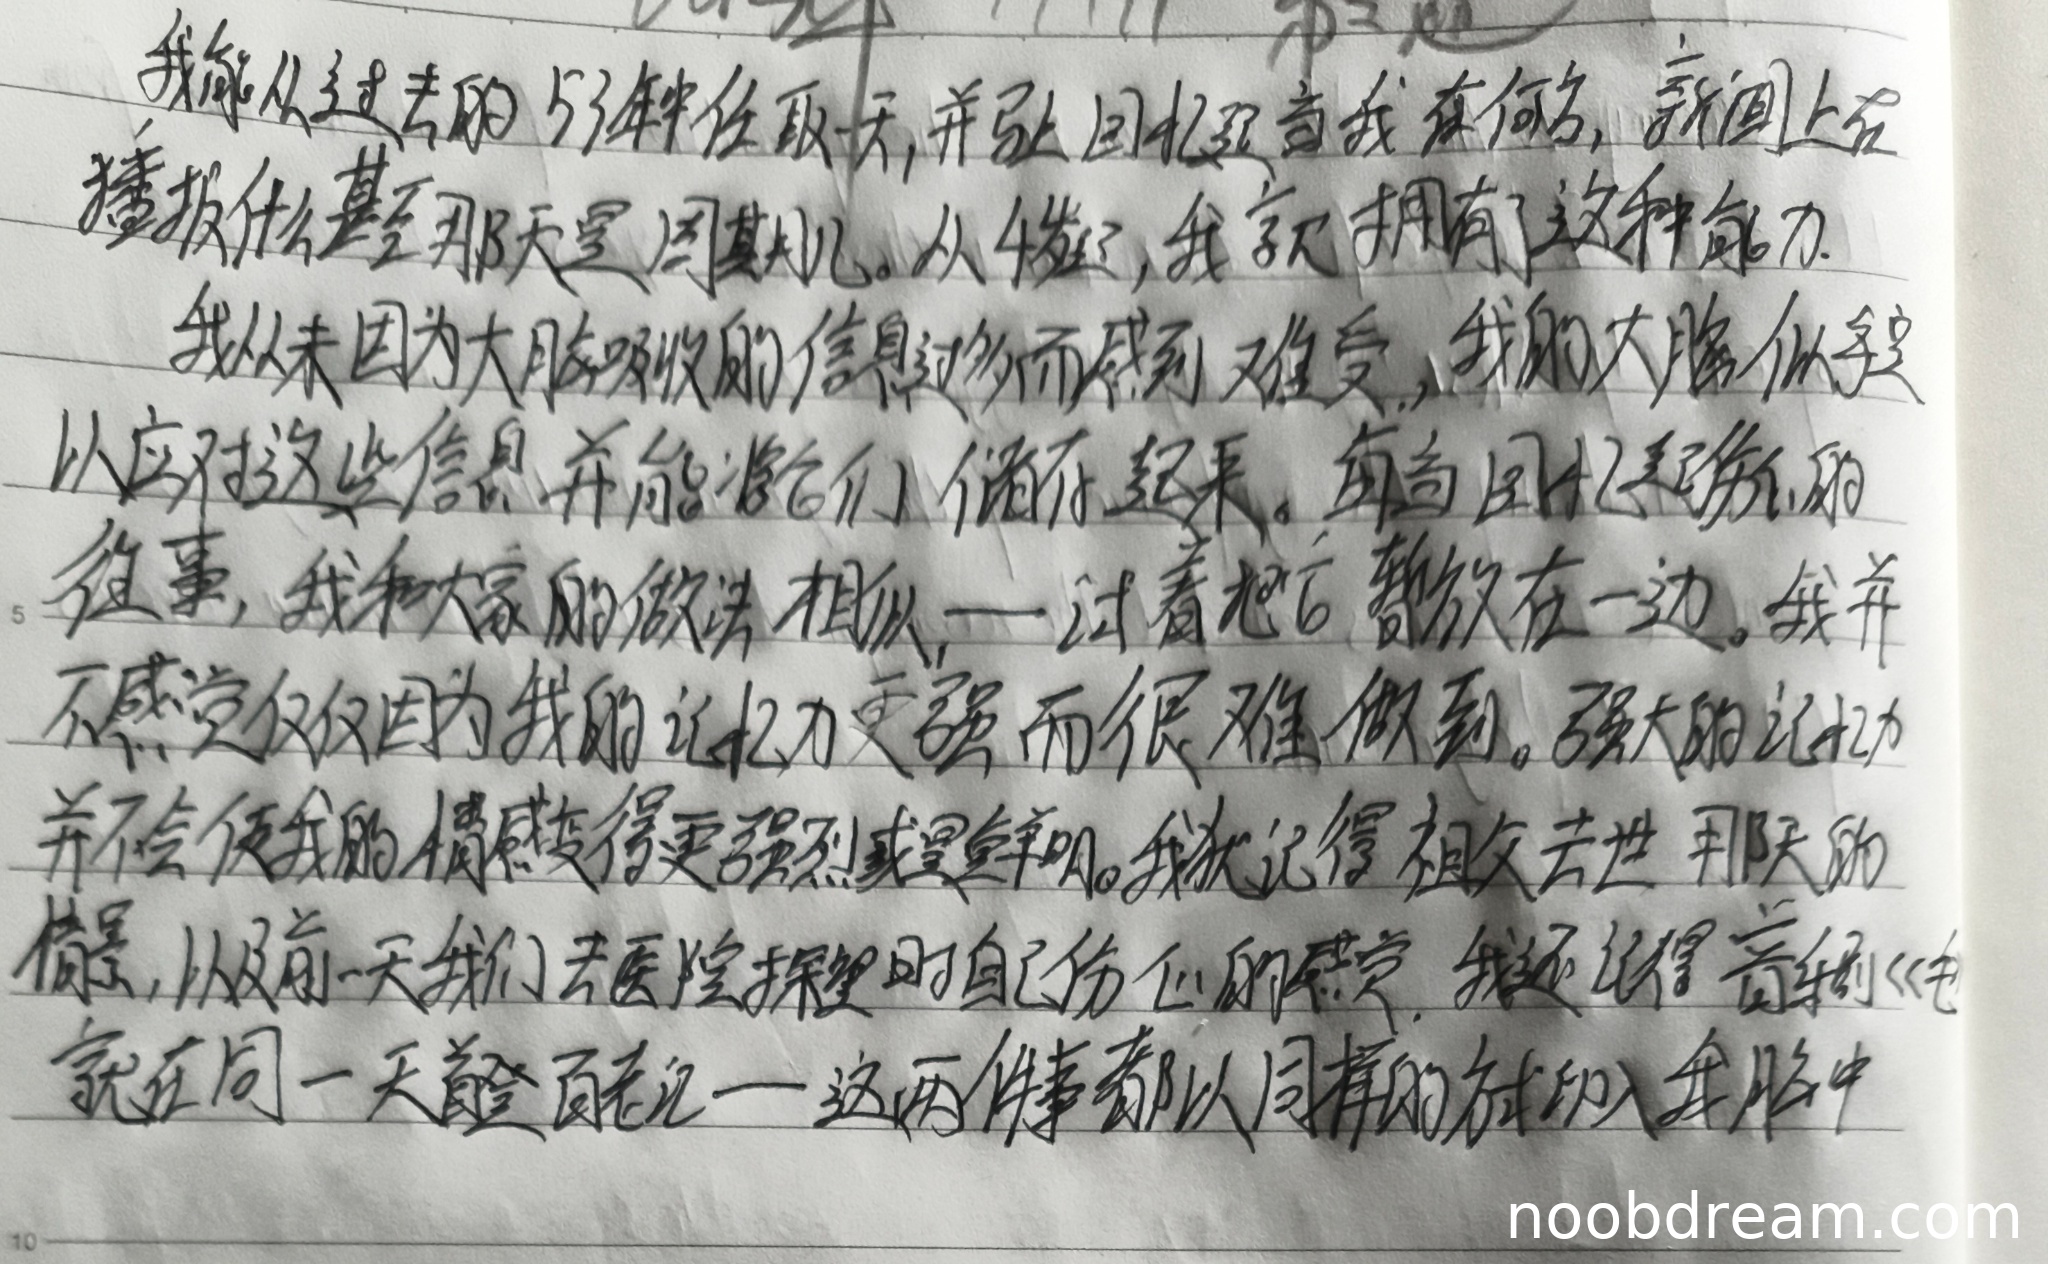 第三题
我能从过去的53年中任取一天,并马上回忆起当我在何方,新闻上在
播报什么甚至那天是周期几。从4岁起,我就拥有了这种能力.
我从未因为大脑吸收的信息过多而感到难受,我的大脑似乎足
以应对这些信息并能将它们储存起来。每当回忆起伤心的
往事,我和大家的做法相似,——试着把它暂放在一边。我并
不感觉仅仅因为我的记忆力更强而很难做到。强大的记忆力
并不会使我的情感变得更强烈或是鲜明。我犹记得祖父去世那天的
情景,以及前一天我们去医院探望时自己伤心的感觉.我还记得音乐剧《毛
就在同一天首登百老汇——这两件事都以同样的方式印入我脑中
5
10
noobdream.com